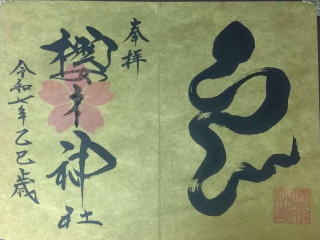 奉拝
櫻木神社
令和七年乙巳歳